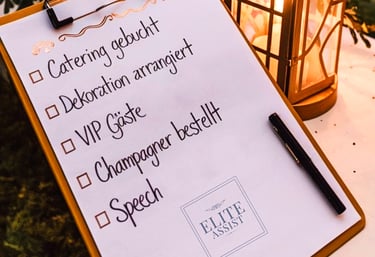 Catering gebucht
Dekoration arrangiert
VIP Gäste
Champagner bestellt
Speech
ELITE
ASSIST